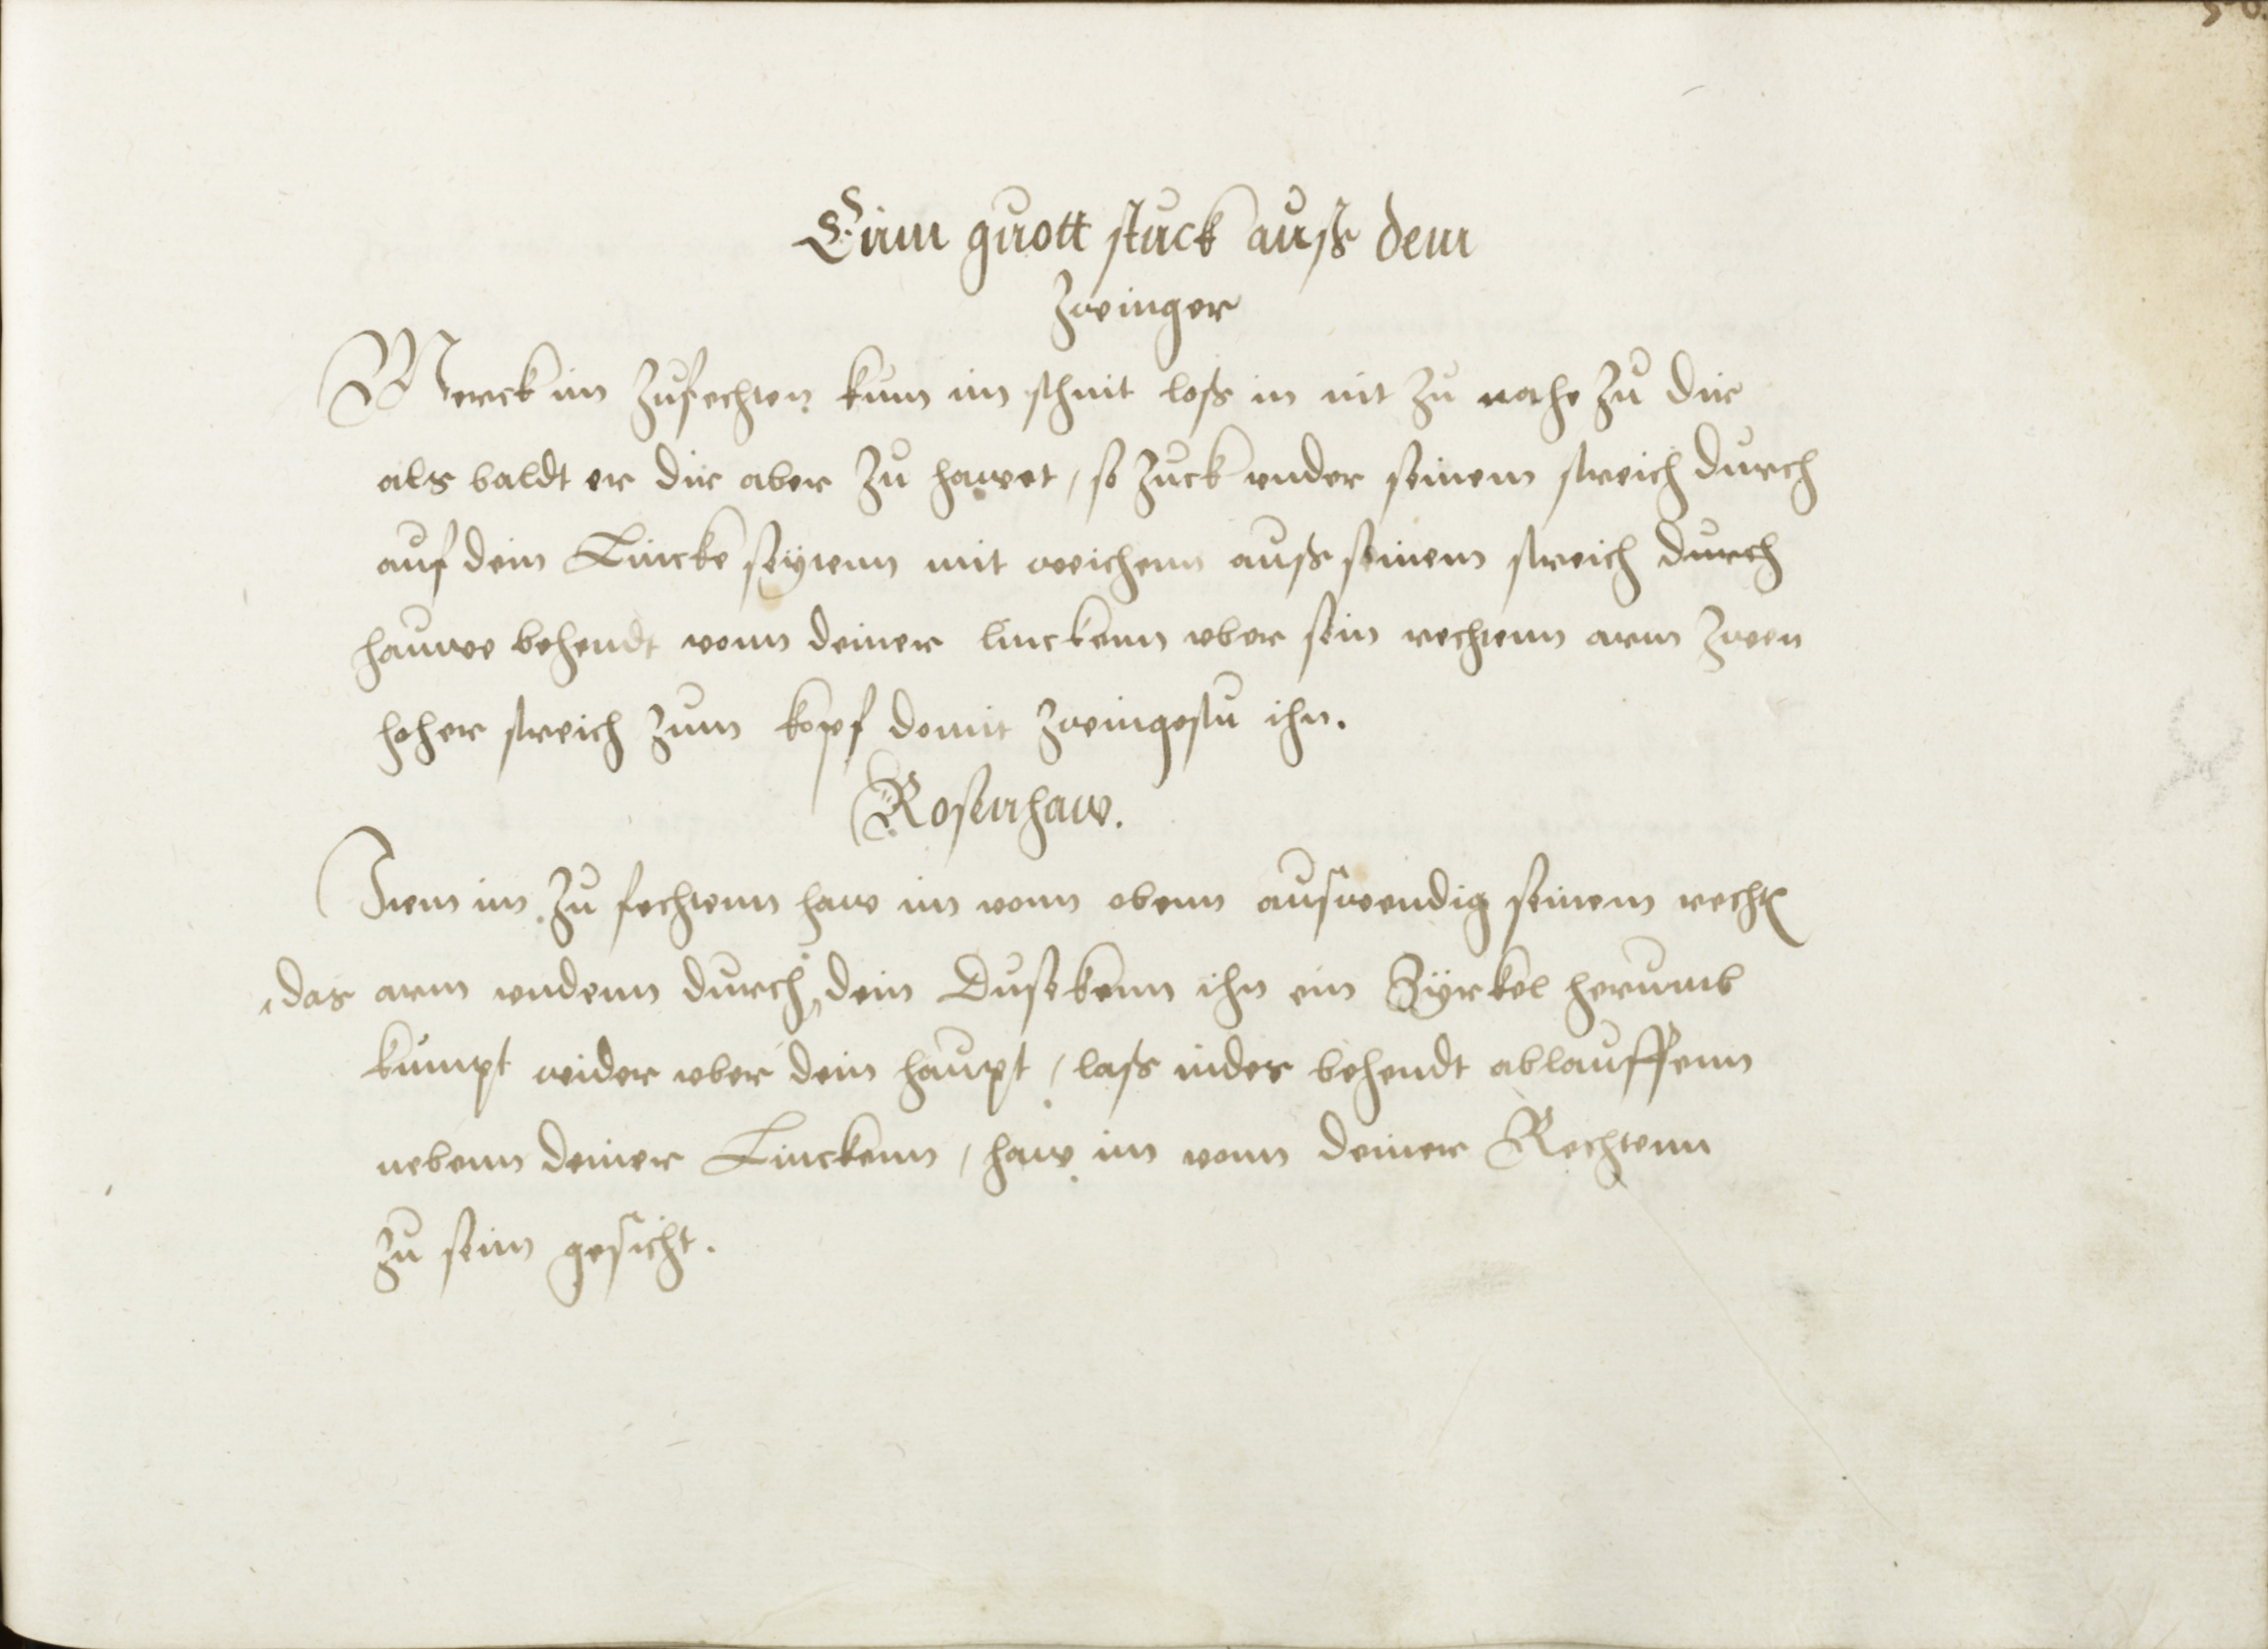 Einn guott stuck auß dem
Zwinger
Merck im Zufechten kum im schnit loß in nit zu nahe zu dir
als baldt er dir aber zu hawet / so zuck under seinem streich durch
auf dein Lincke seÿtenn mit weichenn auß seinem streich durch
hauwe behendt vonn deiner linckenn vber sein rechtenn arm zwen
hoher streich zum kopf domit zwingestu ihn.
Rosenhaw.
Item im zu fechtenn haw im vonn obenn auswendig seinem recht
das arm undenn durch dein Dusekenn ihn ein Zÿrkel herumb
kumpt wider vber dein haupt / laß indes behendt ablauffenn
nebenn deiner Linckenn / haw im vonn deiner Rechtenn
zu seim gesicht.